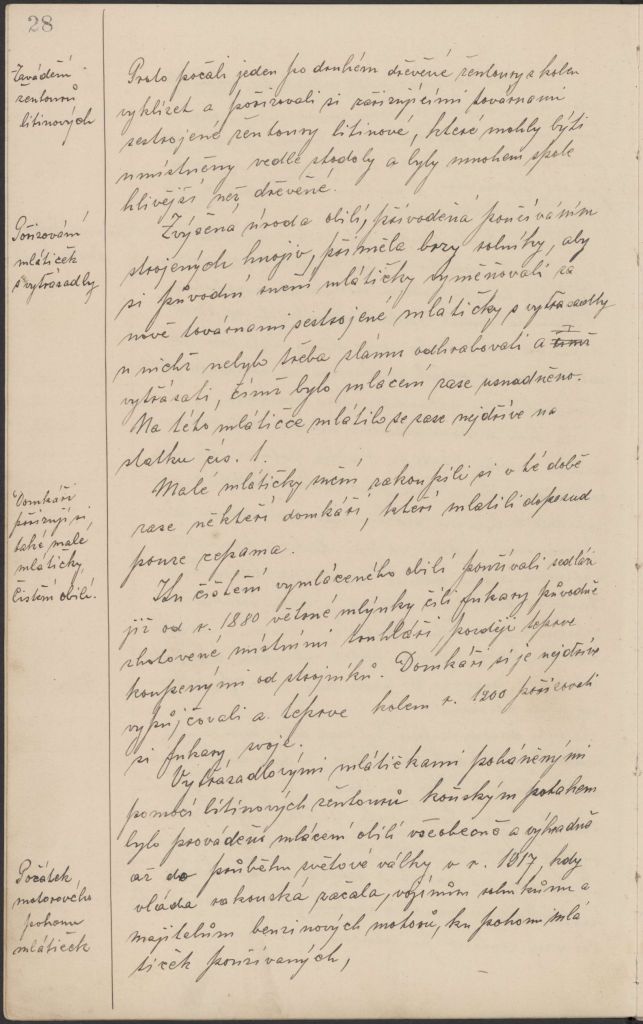 28
Zavádění
žentourů
litinových
Proto počali jeden po druhém dřevěné žentoury z kolen
vyklízet a pořizovali si zařizujícími továrnami
sestrojené žentoury litinové, které mohly býti
umístněny vedle stodoly a byly mnohem spole
hlivější než dřevěné.
Pořizování
mlátiček
s vytřásadly
Zvýšená úroda obilí, přivoděná používáním
strojených hnojiv, přiměla brzy rolníky, aby
si původní ruční mlátičky vyměňovali za
nové továrnami sestrojené mlátičky s vytřasadly
u nichž nebylo třeba slámu odhrabovati a
vytřásati, čímž bylo mlácení zase usnadněno.
Na této mlátičce mlátilo se zase nejdříve na
statku čís. 1.
Domkáři
pořizují si
také malé
mlátičky.
Malé mlátičky ruční zakoupili si v té době
zase někteří domkáři, kteří mlátili doposud
pouze cepama.
Čistění obilí.
Ku čištění vymláceného obilí používali sedláci
již od r. 1880 větrné mlýnky čili fukary původně
zhotovené místními truhláři, později teprve
koupenými od strojníků. Domkáři si je nejdříve
vypůjčovali a teprve kolem r. 1200 pořizovali
si fukary svoje.
Vytřásadlovými mlátičkami poháněnými
pomocí litinových žentourů koňským potahem
bylo prováděno mlácení obilí všeobecně a výhradně
až do průběhu světové války v r. 1917, kdy
Počátek
motorového
pohonu
mlátiček
vláda rakouská začala, rolníkům a
majitelům benzinových motorů, ku pohonu mlá
tiček používaných,